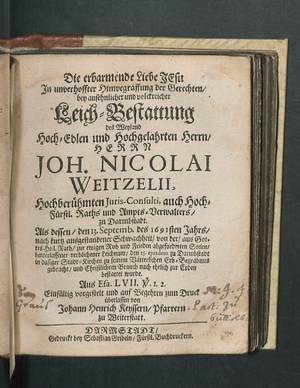 Die erbarmende Liebe JEsu
In unverhoffter Hinwegraffung der Gerechten/
bey ansehnlicher und volckreicher
Leich-Bestattung
des Weyland
Hoch-Edlen und Hochgelahrten Herrn/
HERRN
JOH. NICOLAI
WEITZELII,
Hochberühmten Juris-Consulti, auch Hoch-
Fürstl. Raths und Ampts-Verwalters/
zu Darmstadt.
Als dessen/ den 13. Septemb. des 1691sten Jahrs/
nach kurtz ausgestandener Schwachheit/ von der/ aus GOttes
Heil. Rath/ zur ewigen Ruh und Frieden abgeforderten Seelen/
hinterlassener verblichener Leichnam/ den 15. ejusdem zu Darmstadt
in dasiger Stadt-Kirchen zu seinem Väterlichen Erb-Begräbnus
gebracht/ und Christlichem Brauch nach ehrlich zur Erden
bestattet wurde.
Aus Esa. LVII. V. 1. 2.
Einfältig vorgestellt und auf Begehren zum Druck
überlassen von
Johann Henrich Keyssern/ Pfarrern
zu Weiterstatt.
DARMSTADT/
Gedruckt bey Sebastian Griebeln/ Fürstl. Buchdruckern.